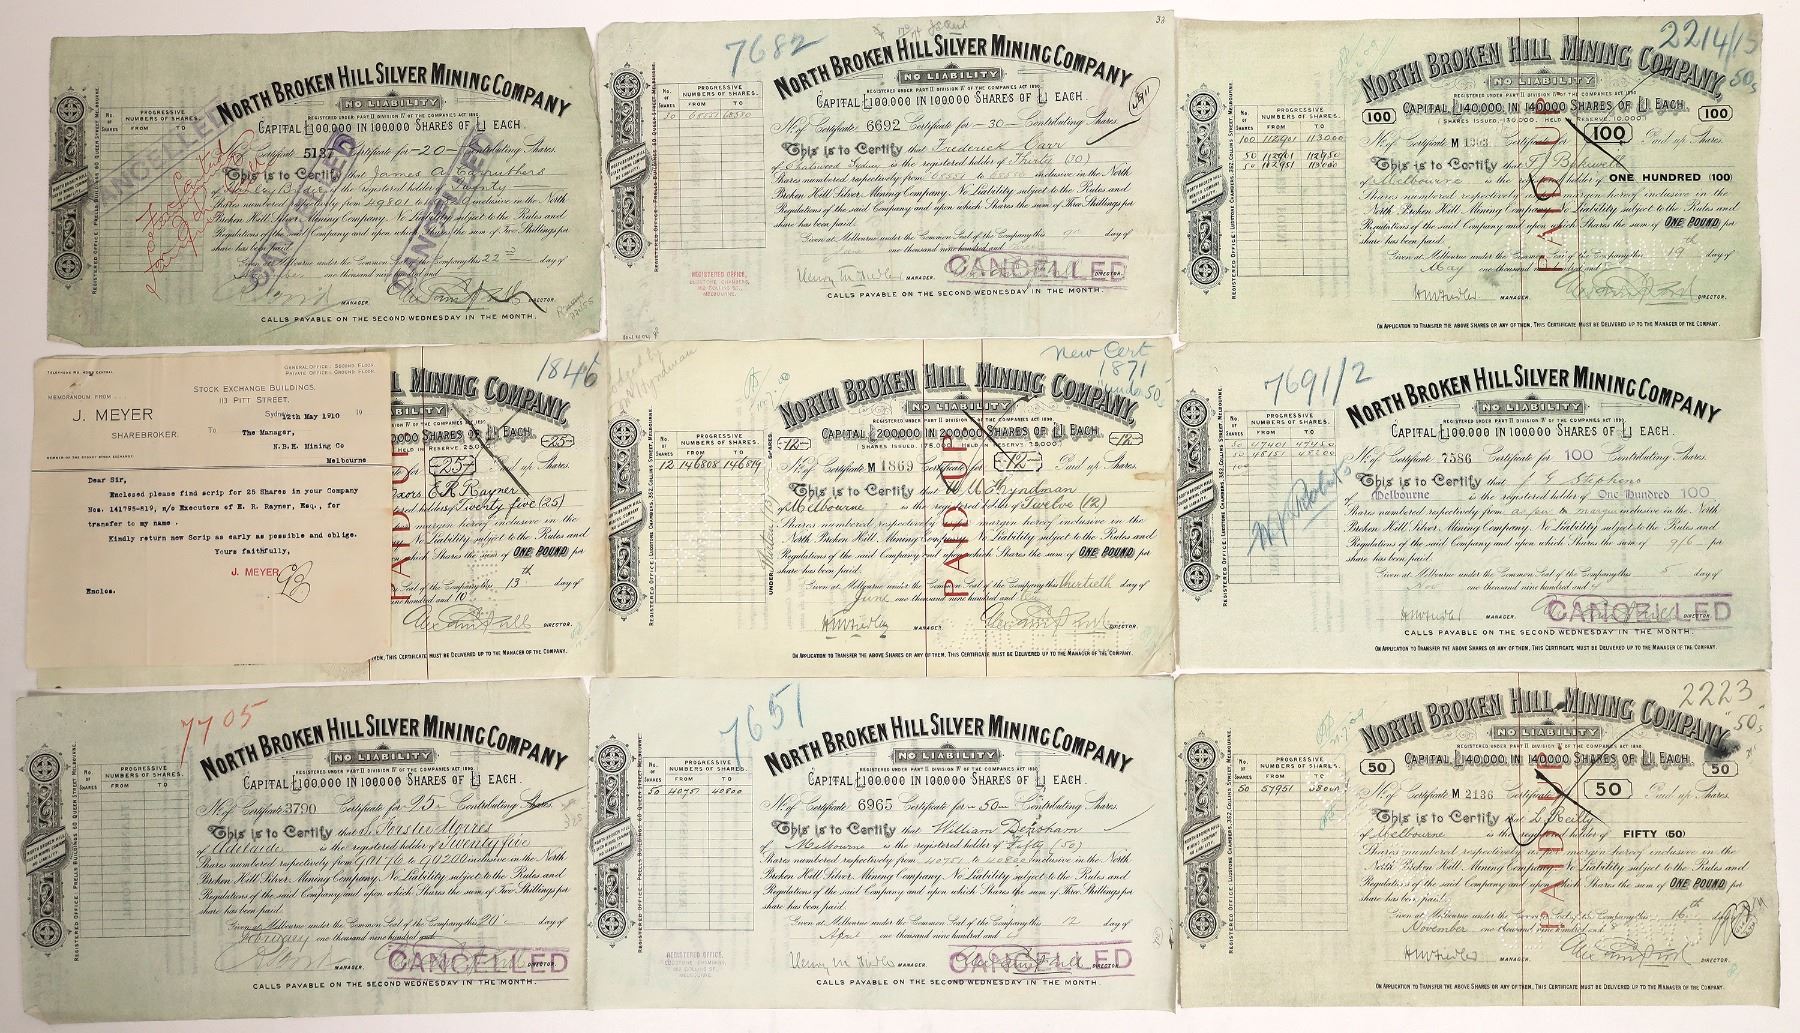 NORTH BROKEN HILL SILVER MINING COMPANY
NO LIABILITY
REGISTERED UNDER PART II DIVISION IV OF THE COMPANIES ACT 1890.
CAPITAL £100,000 IN 100,000 SHARES OF £1 EACH.
PROGRESSIVE
NUMBERS OF SHARES.
No. of SHARES FROM TO
No. of Certificate 5137 Certificate for -20- Contributing Shares.
This is to Certify that James A. Carruthers
is the registered holder of Twenty
Shares numbered respectively from 49801 to inclusive in the North
Broken Hill Silver Mining Company, No Liability, subject to the Rules and
Regulations of the said Company and upon which Shares the sum of Two Shillings per
share has been paid.
Given at Melbourne under the Common Seal of the Company this 22nd day of
one thousand nine hundred and
MANAGER. DIRECTOR.
CALLS PAYABLE ON THE SECOND WEDNESDAY IN THE MONTH.
CANCELLED
CANCELLED
CANCELLED
REGISTERED OFFICE: PRELLS BUILDINGS 60 QUEEN STREET MELBOURNE.
7682
33
NORTH BROKEN HILL SILVER MINING COMPANY
NO LIABILITY
REGISTERED UNDER PART II DIVISION IV OF THE COMPANIES ACT 1890.
CAPITAL £100,000 IN 100,000 SHARES OF £1 EACH.
PROGRESSIVE
NUMBERS OF SHARES.
No. of SHARES FROM TO
30 68551 68580
No. of Certificate 6692 Certificate for -30- Contributing Shares.
This is to Certify that Frederick Carr
of Chatswood Sydney is the registered holder of Thirty (30)
Shares numbered respectively from 68551 to 68580 inclusive in the North
Broken Hill Silver Mining Company, No Liability, subject to the Rules and
Regulations of the said Company and upon which Shares the sum of Three Shillings per
share has been paid.
Given at Melbourne under the Common Seal of the Company this day of
one thousand nine hundred and
Henry M Fidler MANAGER. DIRECTOR.
CANCELLED
REGISTERED OFFICE,
LUDSTONE CHAMBERS,
352 COLLINS ST.,
MELBOURNE.
CALLS PAYABLE ON THE SECOND WEDNESDAY IN THE MONTH.
2214/15
50s
NORTH BROKEN HILL MINING COMPANY,
NO LIABILITY
REGISTERED UNDER PART II DIVISION IV OF THE COMPANIES ACT 1890.
100 CAPITAL £140,000, IN 140,000 SHARES OF £1 EACH. 100
SHARES ISSUED, 130,000. HELD IN RESERVE, 10,000.
PROGRESSIVE
NUMBERS OF SHARES.
No. of SHARES FROM TO
100 112901 113000
50 112901 112950
50 112951 113000
No. of Certificate M 1303 Certificate for 100 Paid up Shares.
This is to Certify that T. Bakewell
of Melbourne is the registered holder of ONE HUNDRED (100)
Shares numbered respectively as per margin hereof inclusive in the
North Broken Hill Mining Company, No Liability, subject to the Rules and
Regulations of the said Company and upon which Shares the sum of ONE POUND per
share has been paid.
Given at Melbourne under the Common Seal of the Company this 19th day of
May one thousand nine hundred and
PAID UP
HMFidler MANAGER. DIRECTOR.
ON APPLICATION TO TRANSFER THE ABOVE SHARES OR ANY OF THEM, THIS CERTIFICATE MUST BE DELIVERED UP TO THE MANAGER OF THE COMPANY.
REGISTERED OFFICE: LUDSTONE CHAMBERS, 352, COLLINS STREET, MELBOURNE.
TELEPHONE NO. CENTRAL
GENERAL OFFICE: SECOND FLOOR.
PRIVATE OFFICE: GROUND FLOOR.
STOCK EXCHANGE BUILDINGS,
113 PITT STREET,
MEMORANDUM FROM
Sydney 12th May 1910 19
J. MEYER
SHAREBROKER.
MEMBER OF THE SYDNEY STOCK EXCHANGE
To The Manager,
N.B.H. Mining Co
Melbourne
Dear Sir,
Enclosed please find scrip for 25 Shares in your Company
Nos. 141795-819, n/o Executors of E. R. Rayner, Esq., for
transfer to my name.
Kindly return new Scrip as early as possible and oblige.
Yours faithfully,
J. MEYER
Enclos.
1846
L MINING COMPANY,
25 25
ors E.R. Rayner
Twenty five (25)
ONE POUND per
this 13th day of
hundred and 10
PAID UP
DIRECTOR.
THIS CERTIFICATE MUST BE DELIVERED UP TO THE MANAGER OF THE COMPANY.
New Cert
1871
"under 50"s
NORTH BROKEN HILL MINING COMPANY,
NO LIABILITY
REGISTERED UNDER PART II DIVISION IV OF THE COMPANIES ACT 1890.
-12- CAPITAL £200,000 IN 200,000 SHARES OF £1 EACH. -12-
PROGRESSIVE
NUMBERS OF SHARES.
No. of SHARES FROM TO
12 146808 146819
No. of Certificate M 1869 Certificate for -12- Paid up Shares.
This is to Certify that W. U. Hyndman
of Melbourne is the registered holder of Twelve (12)
Shares numbered respectively as per margin hereof inclusive in the
North Broken Hill Mining Company, No Liability, subject to the Rules and
Regulations of the said Company and upon which Shares the sum of ONE POUND per
share has been paid.
Given at Melbourne under the Common Seal of the Company this thirtieth day of
June one thousand nine hundred and
PAID UP
HMFidler MANAGER. DIRECTOR.
ON APPLICATION TO TRANSFER THE ABOVE SHARES OR ANY OF THEM, THIS CERTIFICATE MUST BE DELIVERED UP TO THE MANAGER OF THE COMPANY.
7691/2
NORTH BROKEN HILL SILVER MINING COMPANY
NO LIABILITY
REGISTERED UNDER PART II DIVISION IV OF THE COMPANIES ACT 1890.
CAPITAL £100,000 IN 100,000 SHARES OF £1 EACH.
PROGRESSIVE
NUMBERS OF SHARES.
No. of SHARES FROM TO
50 47401 47450
50 48151 48200
100
No. of Certificate 7586 Certificate for 100 Contributing Shares.
This is to Certify that J G Stephens
of Melbourne is the registered holder of One Hundred 100
Shares numbered respectively from as per margin inclusive in the North
Broken Hill Silver Mining Company, No Liability, subject to the Rules and
Regulations of the said Company and upon which Shares the sum of 9/6 per
share has been paid.
Given at Melbourne under the Common Seal of the Company this 5 day of
Nov one thousand nine hundred and
HMFidler MANAGER. DIRECTOR.
CANCELLED
CALLS PAYABLE ON THE SECOND WEDNESDAY IN THE MONTH.
ON APPLICATION TO TRANSFER THE ABOVE SHARES OR ANY OF THEM, THIS CERTIFICATE MUST BE DELIVERED UP TO THE MANAGER OF THE COMPANY.
7705
NORTH BROKEN HILL SILVER MINING COMPANY
NO LIABILITY
REGISTERED UNDER PART II DIVISION IV OF THE COMPANIES ACT 1890.
CAPITAL £100,000 IN 100,000 SHARES OF £1 EACH.
PROGRESSIVE
NUMBERS OF SHARES.
No. of SHARES FROM TO
No. of Certificate 3790 Certificate for 25 Contributing Shares.
This is to Certify that S. Forster Morres
of Adelaide is the registered holder of Twenty five
Shares numbered respectively from 90176 to 90200 inclusive in the North
Broken Hill Silver Mining Company, No Liability, subject to the Rules and
Regulations of the said Company and upon which Shares the sum of Two Shillings per
share has been paid.
Given at Melbourne under the Common Seal of the Company this 20 day of
February one thousand nine hundred and
MANAGER. DIRECTOR.
CANCELLED
CALLS PAYABLE ON THE SECOND WEDNESDAY IN THE MONTH.
7651
NORTH BROKEN HILL SILVER MINING COMPANY
NO LIABILITY
REGISTERED UNDER PART II DIVISION IV OF THE COMPANIES ACT 1890.
CAPITAL £100,000 IN 100,000 SHARES OF £1 EACH.
PROGRESSIVE
NUMBERS OF SHARES.
No. of SHARES FROM TO
50 40751 40800
No. of Certificate 6965 Certificate for -50- Contributing Shares.
This is to Certify that William Densham
of Melbourne is the registered holder of Fifty (50)
Shares numbered respectively from 40751 to 40800 inclusive in the North
Broken Hill Silver Mining Company, No Liability, subject to the Rules and
Regulations of the said Company and upon which Shares the sum of Three Shillings per
share has been paid.
Given at Melbourne under the Common Seal of the Company this 12 day of
April one thousand nine hundred and
Henry M Fidler MANAGER. DIRECTOR.
CANCELLED
REGISTERED OFFICE,
LUDSTONE CHAMBERS,
352 COLLINS ST.,
MELBOURNE.
CALLS PAYABLE ON THE SECOND WEDNESDAY IN THE MONTH.
2223
"50"s
NORTH BROKEN HILL MINING COMPANY,
NO LIABILITY
REGISTERED UNDER PART II DIVISION IV OF THE COMPANIES ACT 1890.
50 CAPITAL £140,000, IN 140,000 SHARES OF £1 EACH. 50
PROGRESSIVE
NUMBERS OF SHARES.
No. of SHARES FROM TO
50 57951 58000
No. of Certificate M 2136 Certificate for 50 Paid up Shares.
This is to Certify that L. Reilly
of Melbourne is the registered holder of FIFTY (50)
Shares numbered respectively as per margin hereof inclusive in the
North Broken Hill Mining Company, No Liability, subject to the Rules and
Regulations of the said Company and upon which Shares the sum of ONE POUND per
share has been paid.
Given at Melbourne under the Common Seal of the Company this 16th day of
November one thousand nine hundred and 8
PAID UP
HMFidler MANAGER. DIRECTOR.
ON APPLICATION TO TRANSFER THE ABOVE SHARES OR ANY OF THEM, THIS CERTIFICATE MUST BE DELIVERED UP TO THE MANAGER OF THE COMPANY.